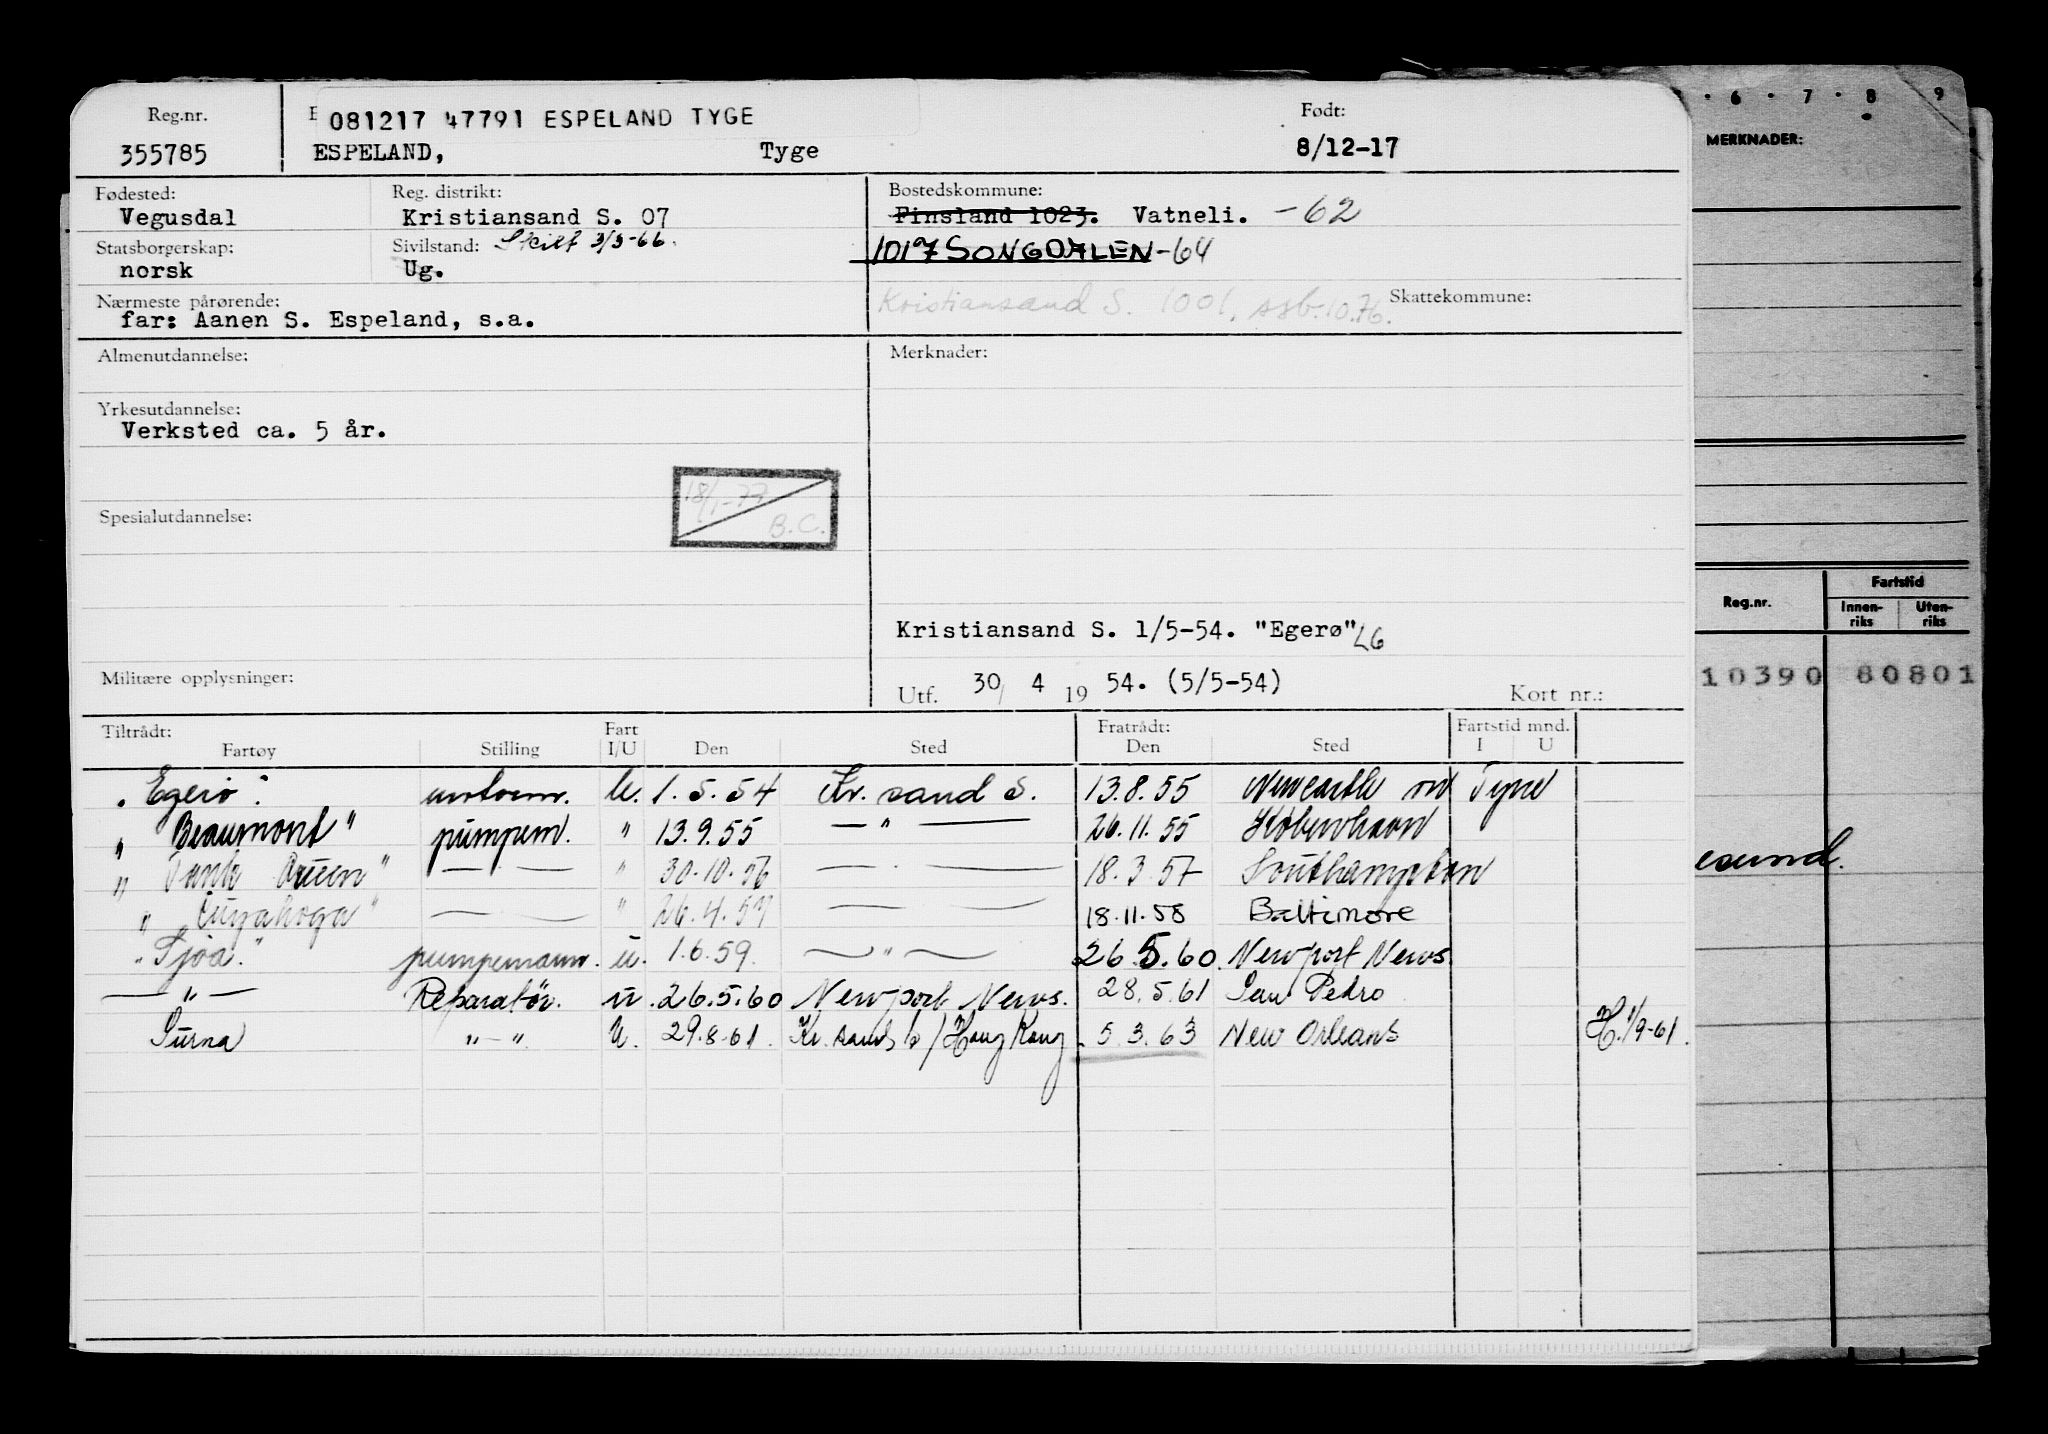 Reg.nr. 355785
081217 47791 ESPELAND TYGE
ESPELAND, Tyge
Født: 8/12-17
Fødested: Vegusdal
Reg. distrikt: Kristiansand S. 07
Bostedskommune: Finsland 1023. Vatneli. -62
1017 SONGDALEN -64
Statsborgerskap: norsk
Sivilstand: Skilt 3/3-66.
Ug.
Nærmeste pårørende:
far: Aanen S. Espeland, s.a.
Kristiansand S. 1001. 10.76.
Skattekommune:
Almenutdannelse:
Merknader:
Yrkesutdannelse:
Verksted ca. 5 år.
18/1-77
B.C.
Spesialutdannelse:
Kristiansand S. 1/5-54. "Egerø" LG
Militære opplysninger:
Utf. 30/ 4 19 54. (5/5-54)
Kort nr.:
Tiltrådt: Fart Fratrådt: Fartstid mnd.
Fartøy Stilling I/U Den Sted Den Sted I U
"Egerø" U. 1.5.54 Kr. sand S. 13.8.55 Newcastle on Tyne
" Beaumont " pumpem. " 13.9.55 — " — 26.11.55 København
" Tank Queen " — — " 30.10.56 — — 18.3.57 Southampton
" Cuyahoga " — — " 26.4.57 — — 18.11.58 Baltimore
" Tjøa." pumpemann. u. 1.6.59. — " — 26.5.60. Newport News.
— " — Reparatør. u. 26.5.60 Newport News. 28.5.61 San Pedro
Surna " - " U. 29.8.61. Kr. sand S / Hong Kong. 5.3.63 New Orleans H. 1/9-61.
6 · 7 · 8 9
MERKNADER:
Reg.nr. Fartstid
Innenriks Utenriks
10390 80801
esund.